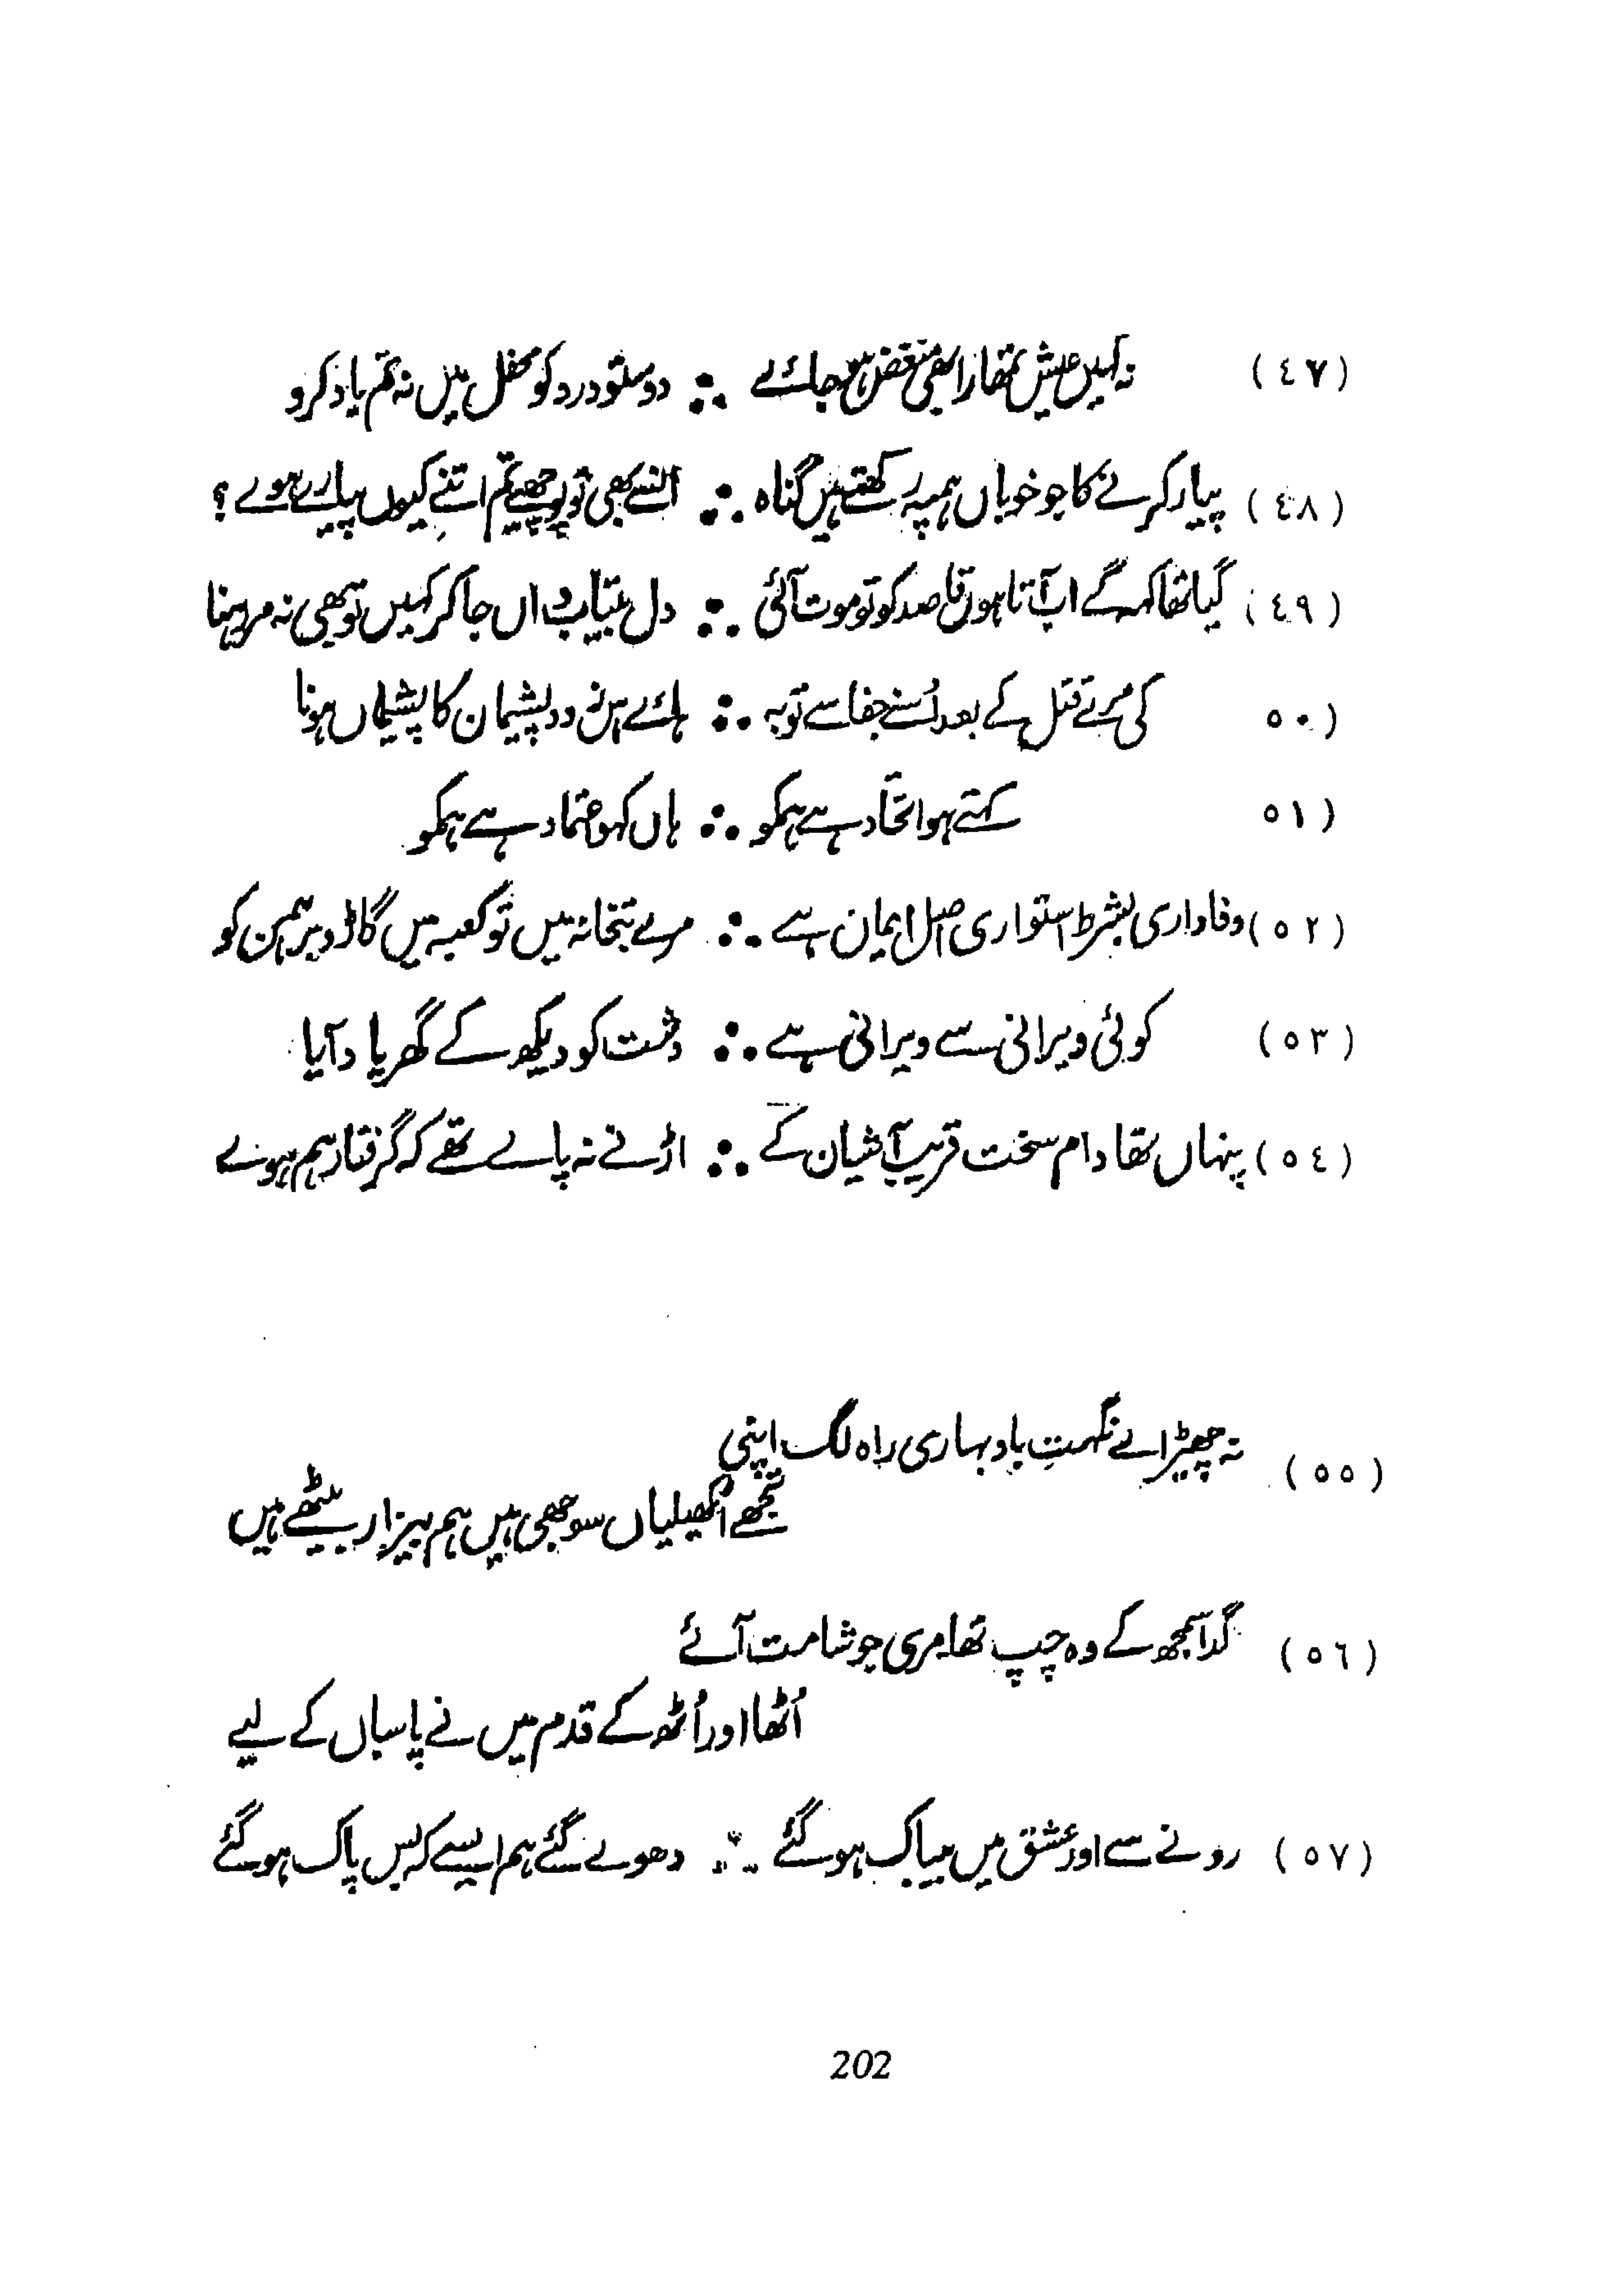 (٤٧) نہ کہیں عیش تمھارا بھی منغض ہو جائے ∴ دوستو درد کو محفل میں نہ تم یاد کرو
(٤٨) پیار کرنے کا جو خوباں ہم پہ رکھتے ہیں گناہ ∴ انسے بھی تو پوچھیے تم اتنے کیوں پیارے ہوے ؟
(٤٩) گیا تھا کہہ کے اب آتا ہوں قاصد کو تو موت آئی ∴ دل بیتاب واں جا کر کہیں تو بھی نہ مر رہنا
٥٠) کی مرے قتل کے بعد اُسنے جفا سے توبہ ∴ ہائے اس زود پشیمان کا پشیماں ہونا
٥١) کہتے ہو اتحّاد ہے ہمکو ∴ ہاں کہو اعتماد ہے ہمکو
(٥٢) وفاداری بشرط استواری اصل ایمان ہے ∴ مرے بتخانہ میں تو کعبہ میں گاڑو برہمن کو
(٥٣) کوئی ویرانی سے ویرانی ہے ∴ دشت کو دیکھ کے گھر یاد آیا
(٥٤) پنہاں تھا دام سخت قریب آشیان کے ∴ اڑنے نہ پاے تھے کہ گرفتار ہم ہوے
(٥٥) نہ چھیڑ اے نکہتِ باد بہاری راہ لگ اپنی
تجھے اٹھکھیلیاں سوجھی ہیں ہم بیزار بیٹھے ہیں
(٥٦) گدا سمجھ کے وہ چپ تھا مری جو شامت آئے
اُٹھا اور اُٹھ کے قدم میں نے پاسباں کے لیے
(٥٧) رونے سے اور عشق میں بیباک ہو گئے ∴ دھوے گئے ہم ایسے کہ بس پاک ہو گئے
202